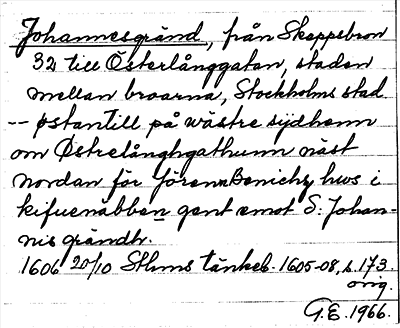 Johannesgränd, från Skeppsbron
32 till Österlånggatan, staden
mellan broarna, Stockholms stad
-- østantill på wästre sÿdhenn
om Østrelånghgathunn näst
nordan för Jörenn Benichz hws i
kifuenäbben gent emot S: Johan-
nis grändh.
1606 20/10 Sthms tänkeb. 1605-08, s. 173.
orig.
G.E. 1966.